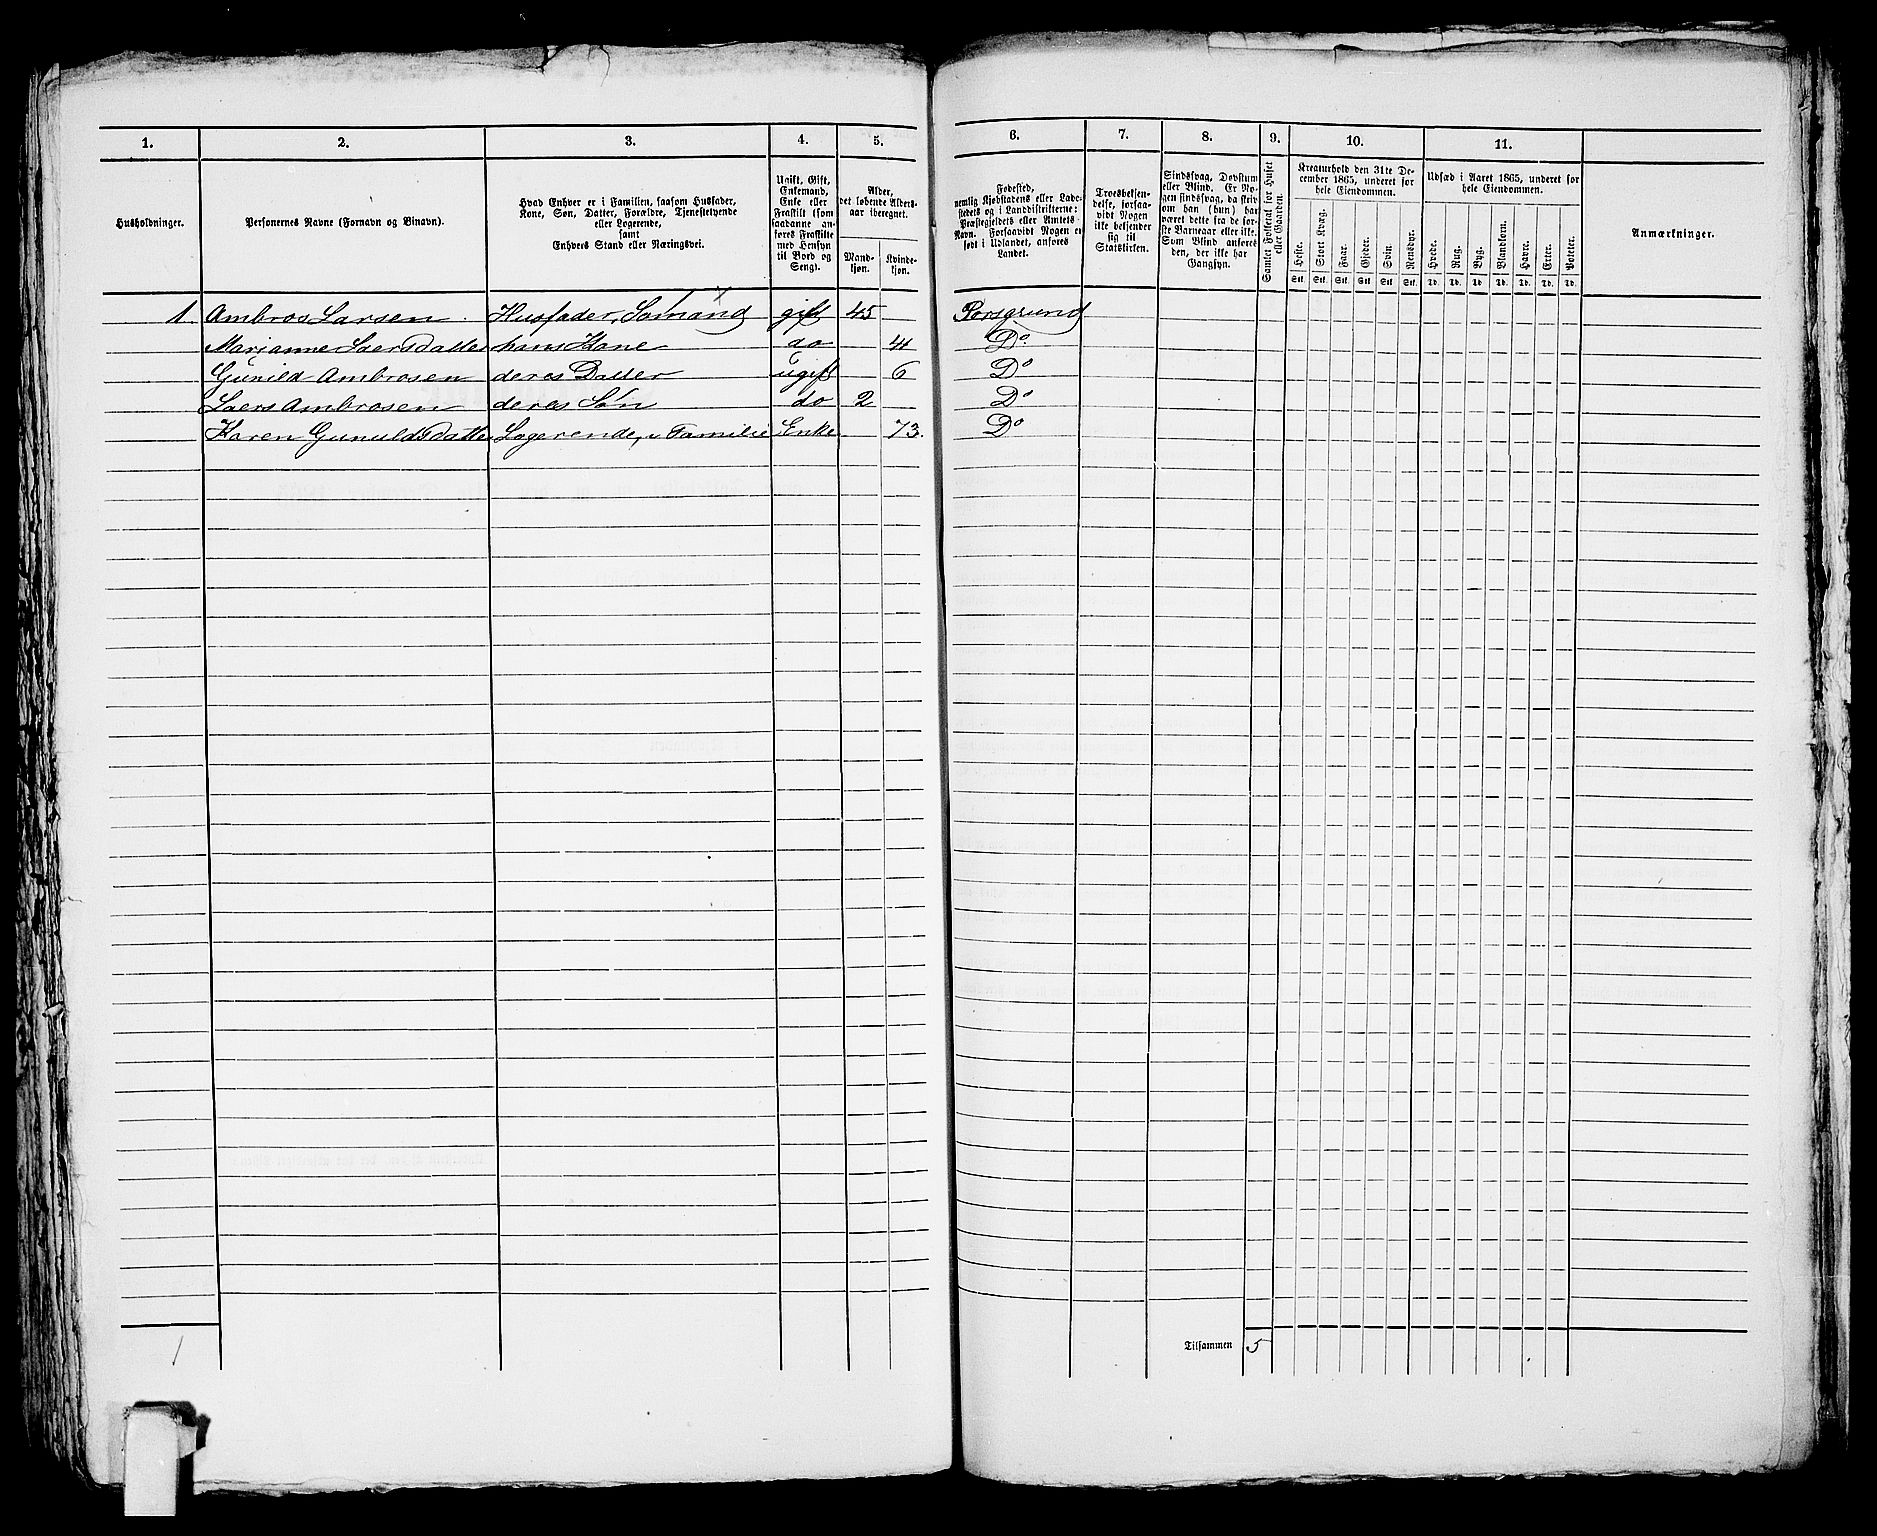 1. 2. 3. 4. 5. 6. 7. 8. 9. 10. 11.
Husholdninger.
Personernes Navne (Fornavn og Binavn).
Hvad Enhver er i Familien, saasom Husfader,
Kone, Søn, Datter, Forældre, Tjenestetyende
eller Logerende,
samt
Enhvers Stand eller Næringsvei.
Ugift, Gift,
Enkemand,
Enke eller
Fraskilt (som
saadanne an-
føres Fraskilte
med Hensyn
til Bord og
Seng).
Alder,
det løbende Alders-
aar iberegnet.
Mand-
kjøn.
Kvinde-
kjøn.
Fødested,
nemlig Kjøbstadens eller Lade-
stedets og i Landdistrikterne:
Præstegjeldets eller Amtets
Navn. Forsaavidt Nogen er
født i Udlandet, anføres
Landet.
Troesbekjen-
delse, forsaa-
vidt Nogen
ikke bekjender
sig til
Statskirken.
Sindssvag, Døvstum
eller Blind. Er No-
gen sindssvag, da skriv
om han (hun) har
været dette fra de før-
ste Barneaar eller ikke.
Som Blind anføres
den, der ikke har
Gangsyn.
Samlet Folketal for Huset
eller Gaarden.
Kreaturhold den 31te De-
cember 1865, underet for
hele Eiendommen.
Heste. Stort Kvæg. Faar. Gjeder. Svin. Rensdyr.
Stk. Stk. Stk. Stk. Stk. Stk.
Udsæd i Aaret 1865, underet for
hele Eiendommen.
Hvede. Rug. Byg. Blandkorn. Havre. Erter. Poteter.
Td. Td. Td. Td. Td. Td. Td.
Anmærkninger.
1. Ambros Larsen Husfader, Sømand gift 45 Porsgrund
Marjanne Laersdatter hans Kone do 41 Do
Gunild Ambrosen deres Datter ugift 6 Do
Laers Ambrosen deres Søn do 2 Do
Karen Gunuldsdatter Logerende, Familie Enke 73. Do
1
Tilsammen 5